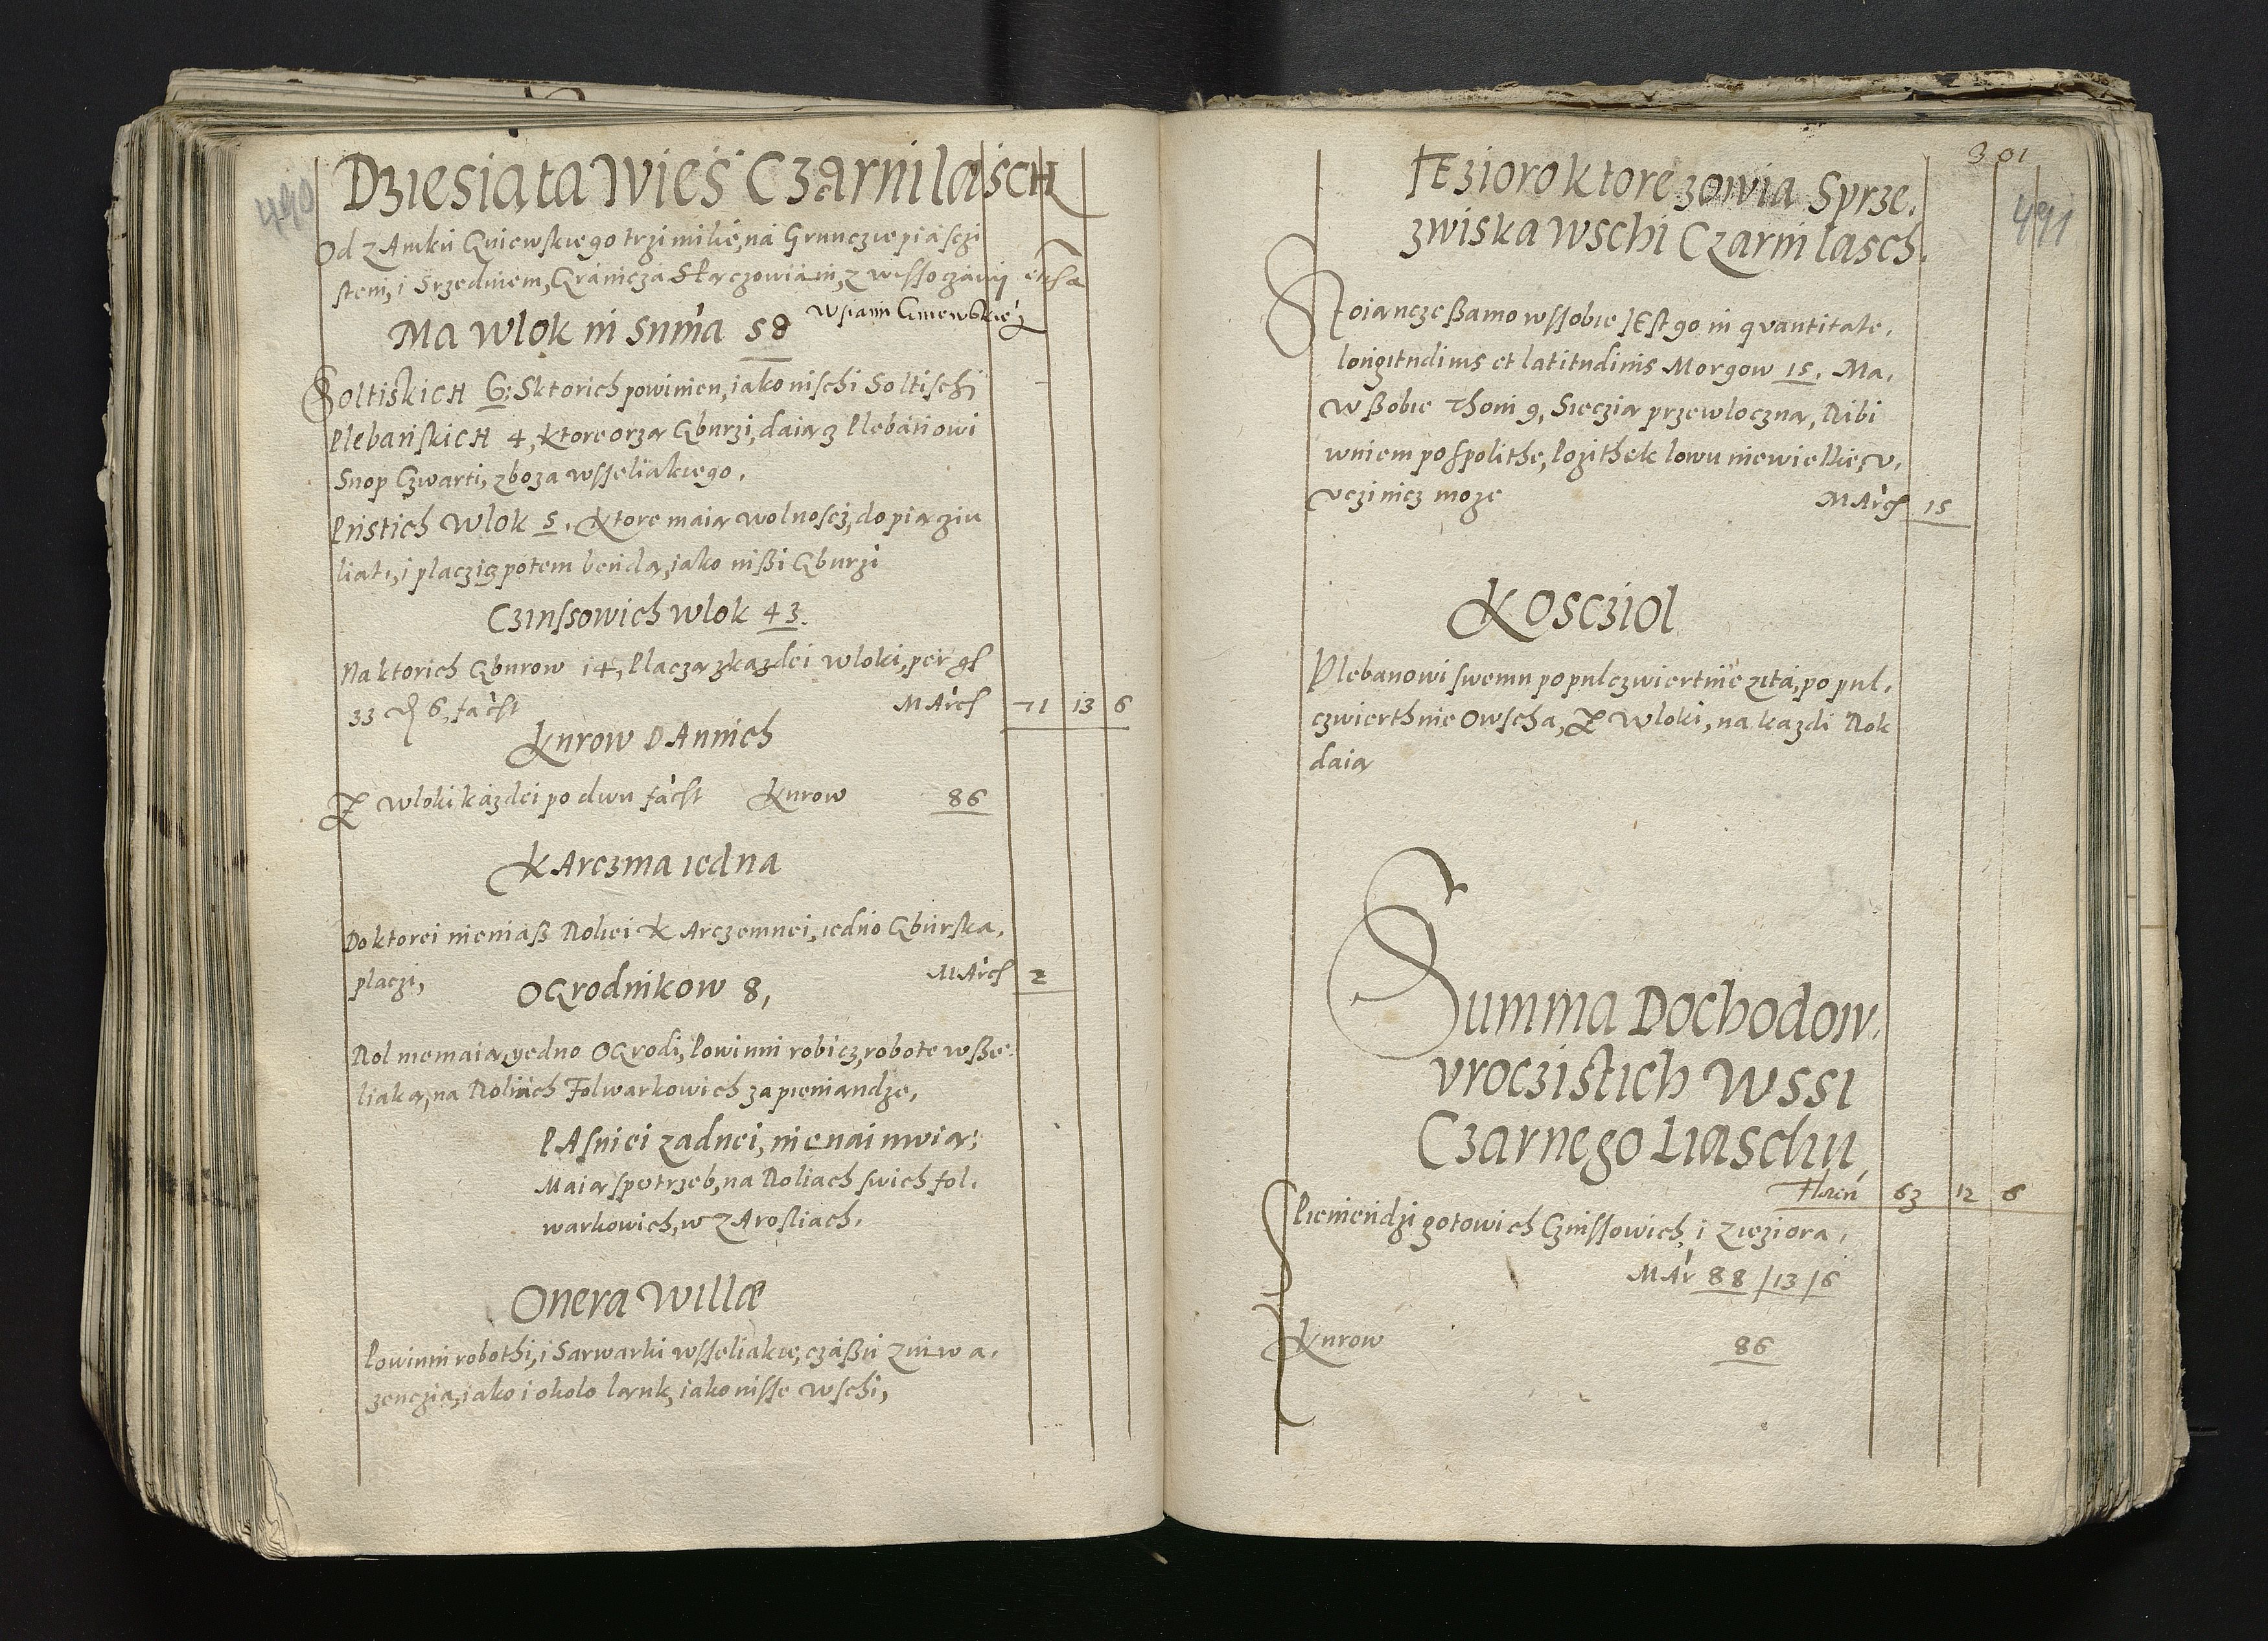 490
Dziesiąta Wieś Czarni lasch
Od zAmku Gniewskiego trzi milie, na Grunczie piasczi
stem, i Srzedniem, Graniczą
Wsiami Gniewskiej
Ma Wlok in Suma 58
Soltiskich 6; Sktorich powinien, iako inschi Soltischi
Plebańskich 4, ktore orzą Gburzi, daiącz Plebanowi
Snop Czwarti, zboza wsseliakiego.
Pustich Wlok 5. Ktore maią wolnoscz, do piąziu
liat, i placzicz potem bendą, iako inßi Gburzi
Czinssowich wlok 43.
Na ktorich Gburow 14, Placzą zkazdei wloki, per gs
33 ₰ 6, facst Marcs 71 13 6
Kurow dAnnich
Z wloki kazdei po dwu facst Kurow 86
KArczma iedna
Do ktorei niemaß Roliei KArczemnei, iedno Gburska,
placzi, MArcs 2
OGrodnikow 8,
Rol niemaią, yedno OGrodi, Powinni robicz, robote wsße
liaką, na Roliach Folwarkowich za pieniandze,
PAsniei zadnei, nienaimuią:
Maią spotrzeb, na Roliach swich fol.
warkowich, w zArosliach.
Onera Willæ
Powinni robothi, i Sarwarki wsseliakie, czaßu zniwa.
zenczia, iako i okolo lank, iako insse wschi,
301
491
IEzioro ktore zowią Sprze.
zwiska wschi Czarni lasch.
Stoiancze ßamo wssobie IEst go in quantitate.
longitudinis et latitudinis Morgow 15. Ma.
w ßobie Thoni 9, Sieczią przewloczną, Ribi
wniem pospolithe, Pozithek lowu niewielkie, v.
vczinicz moze MArcs 15
Koscziol
Plebanowi swemu po pulczwiertnie zita, po pul.
czwierthnie Owscha, Z Wloki, na kazdi Rok
daią
Summa Dochodow.
vroczistich Wssi
Czarnego Liaschu
Floren 63 12 6
Pieniendzi gotowich Czinssowich, i zieziora.
MAr 88 / 13 / 6
Kurow 86